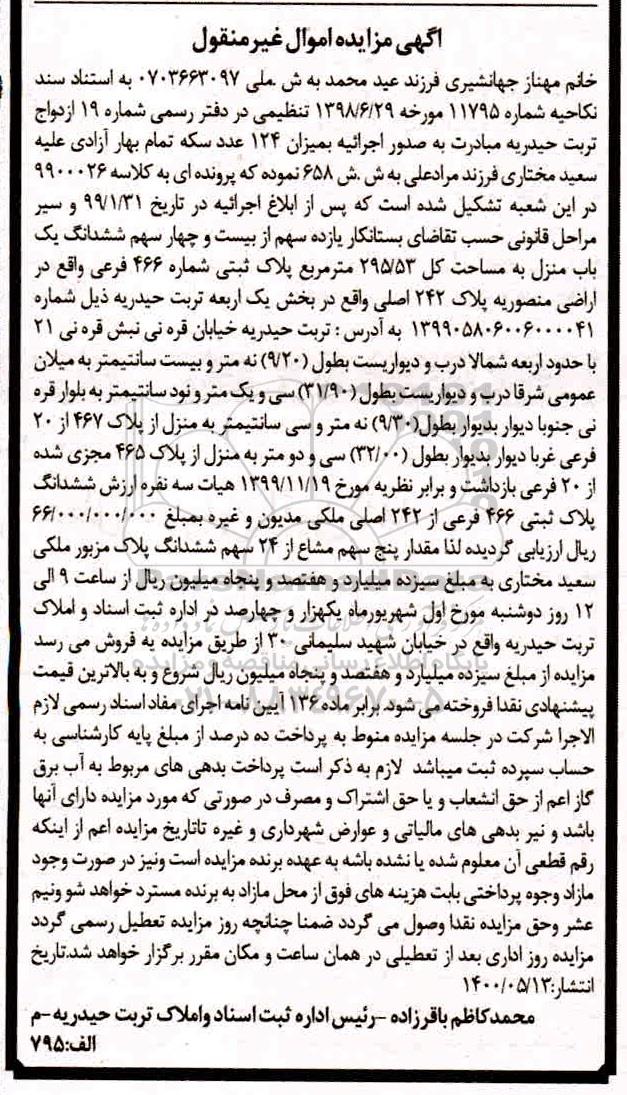 آگهی مزایده اموال غیرمنقول
خانم مهناز جهانشیری فرزند عید محمد به ش .ملی ۰۷۰۳۶۶۳۰۹۷ به استناد سند
نکاحیه شماره ۱۱۷۹۵ مورخه ۱۳۹۸/۶/۲۹ تنظیمی در دفتر رسمی شماره ۱۹ ازدواج
تربت حیدریه مبادرت به صدور اجرائیه بمیزان ۱۲۴ عدد سکه تمام بهار آزادی علیه
سعید مختاری فرزند مرادعلی به ش .ش ۶۵۸ نموده که پرونده ای به کلاسه ۹۹۰۰۰۲۶
در این شعبه تشکیل شده است که پس از ابلاغ اجرائیه در تاریخ ۹۹/۱/۳۱ و سیر
مراحل قانونی حسب تقاضای بستانکار یازده سهم از بیست و چهار سهم ششدانگ یک
باب منزل به مساحت کل ۲۹۵/۵۳ مترمربع پلاک ثبتی شماره ۴۶۶ فرعی واقع در
اراضی منصوریه پلاک ۲۴۲ اصلی واقع در بخش یک اربعه تربت حیدریه ذیل شماره
۱۳۹۹۰۵۸۰۶۰۰۶۰۰۰۰۴۱ به آدرس : تربت حیدریه خیابان قره نی نبش قره نی ۲۱
با حدود اربعه شمالا درب و دیواریست بطول (۹/۲۰) نه متر و بیست سانتیمتر به میلان
عمومی شرقا درب و دیواریست بطول (۳۱/۹۰) سی و یک متر و نود سانتیمتر به بلوار قره
نی جنوبا دیوار بدیوار بطول(۹/۳۰) نه متر و سی سانتیمتر به منزل از پلاک ۴۶۷ از ۲۰
فرعی غربا دیوار بدیوار بطول (۳۲/۰۰) سی و دو متر به منزل از پلاک ۴۶۵ مجزی شده
از ۲۰ فرعی بازداشت و برابر نظریه مورخ ۱۳۹۹/۱۱/۱۹ هیات سه نفره ارزش ششدانگ
پلاک ثبتی ۴۶۶ فرعی از ۲۴۲ اصلی ملکی مدیون و غیره بمبلغ ۶۶/۰۰۰/۰۰۰/۰۰۰
ریال ارزیابی گردیده لذا مقدار پنج سهم مشاع از ۲۴ سهم ششدانگ پلاک مزبور ملکی
سعید مختاری به مبلغ سیزده میلیارد و هفتصد و پنجاه میلیون ریال از ساعت ۹ الی
۱۲ روز دوشنبه مورخ اول شهریورماه یکهزار و چهارصد در اداره ثبت اسناد و املاک
تربت حیدریه واقع در خیابان شهید سلیمانی ۳۰ از طریق مزایده به فروش می رسد
مزایده از مبلغ سیزده میلیارد و هفتصد و پنجاه میلیون ریال شروع و به بالاترین قیمت
پیشنهادی نقدا فروخته می شود. برابر ماده ۱۳۶ آیین نامه اجرای مفاد اسناد رسمی لازم
الاجرا شرکت در جلسه مزایده منوط به پرداخت ده درصد از مبلغ پایه کارشناسی به
حساب سپرده ثبت میباشد لازم به ذکر است پرداخت بدهی های مربوط به آب برق
گاز اعم از حق انشعاب و یا حق اشتراک و مصرف در صورتی که مورد مزایده دارای آنها
باشد و نیر بدهی های مالیاتی و عوارض شهرداری و غیره تاتاریخ مزایده اعم از اینکه
رقم قطعی آن معلوم شده یا نشده باشه به عهده برنده مزایده است ونیز در صورت وجود
مازاد وجوه پرداختی بابت هزینه های فوق از محل مازاد به برنده مسترد خواهد شو ونیم
عشر وحق مزایده نقدا وصول می گردد ضمنا چنانچه روز مزایده تعطیل رسمی گردد
مزایده روز اداری بعد از تعطیلی در همان ساعت و مکان مقرر برگزار خواهد شد.تاریخ
انتشار:۱۴۰۰/۰۵/۱۳
محمدکاظم باقرزاده –رئیس اداره ثبت اسناد واملاک تربت حیدریه-م
الف:۷۹۵